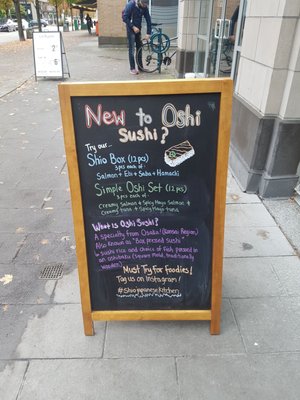 New to Oshi
Sushi?
Try our...
Shio Box (12pcs)
3pcs each of
Salmon + Ebi + Saba + Hamachi
Simple Oshi Set (12pcs)
3pcs each of
Creamy Salmon + Spicy Mayo Salmon +
Creamy Tuna + Spicy Mayo Tuna
What is Oshi Sushi?
A specialty from Osaka (Kansai Region)
Also Known as "Box pressed Sushi
sushi rice and choice of fish pressed in
an oshibako (square mold, traditionally
wooden)
Must Try for foodies!
Tag us on Instagram!
#Shiojapanesekitchen